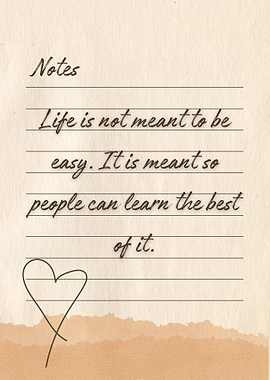 Notes
Life is not meant to be
easy. It is meant so
people can learn the best
of it.